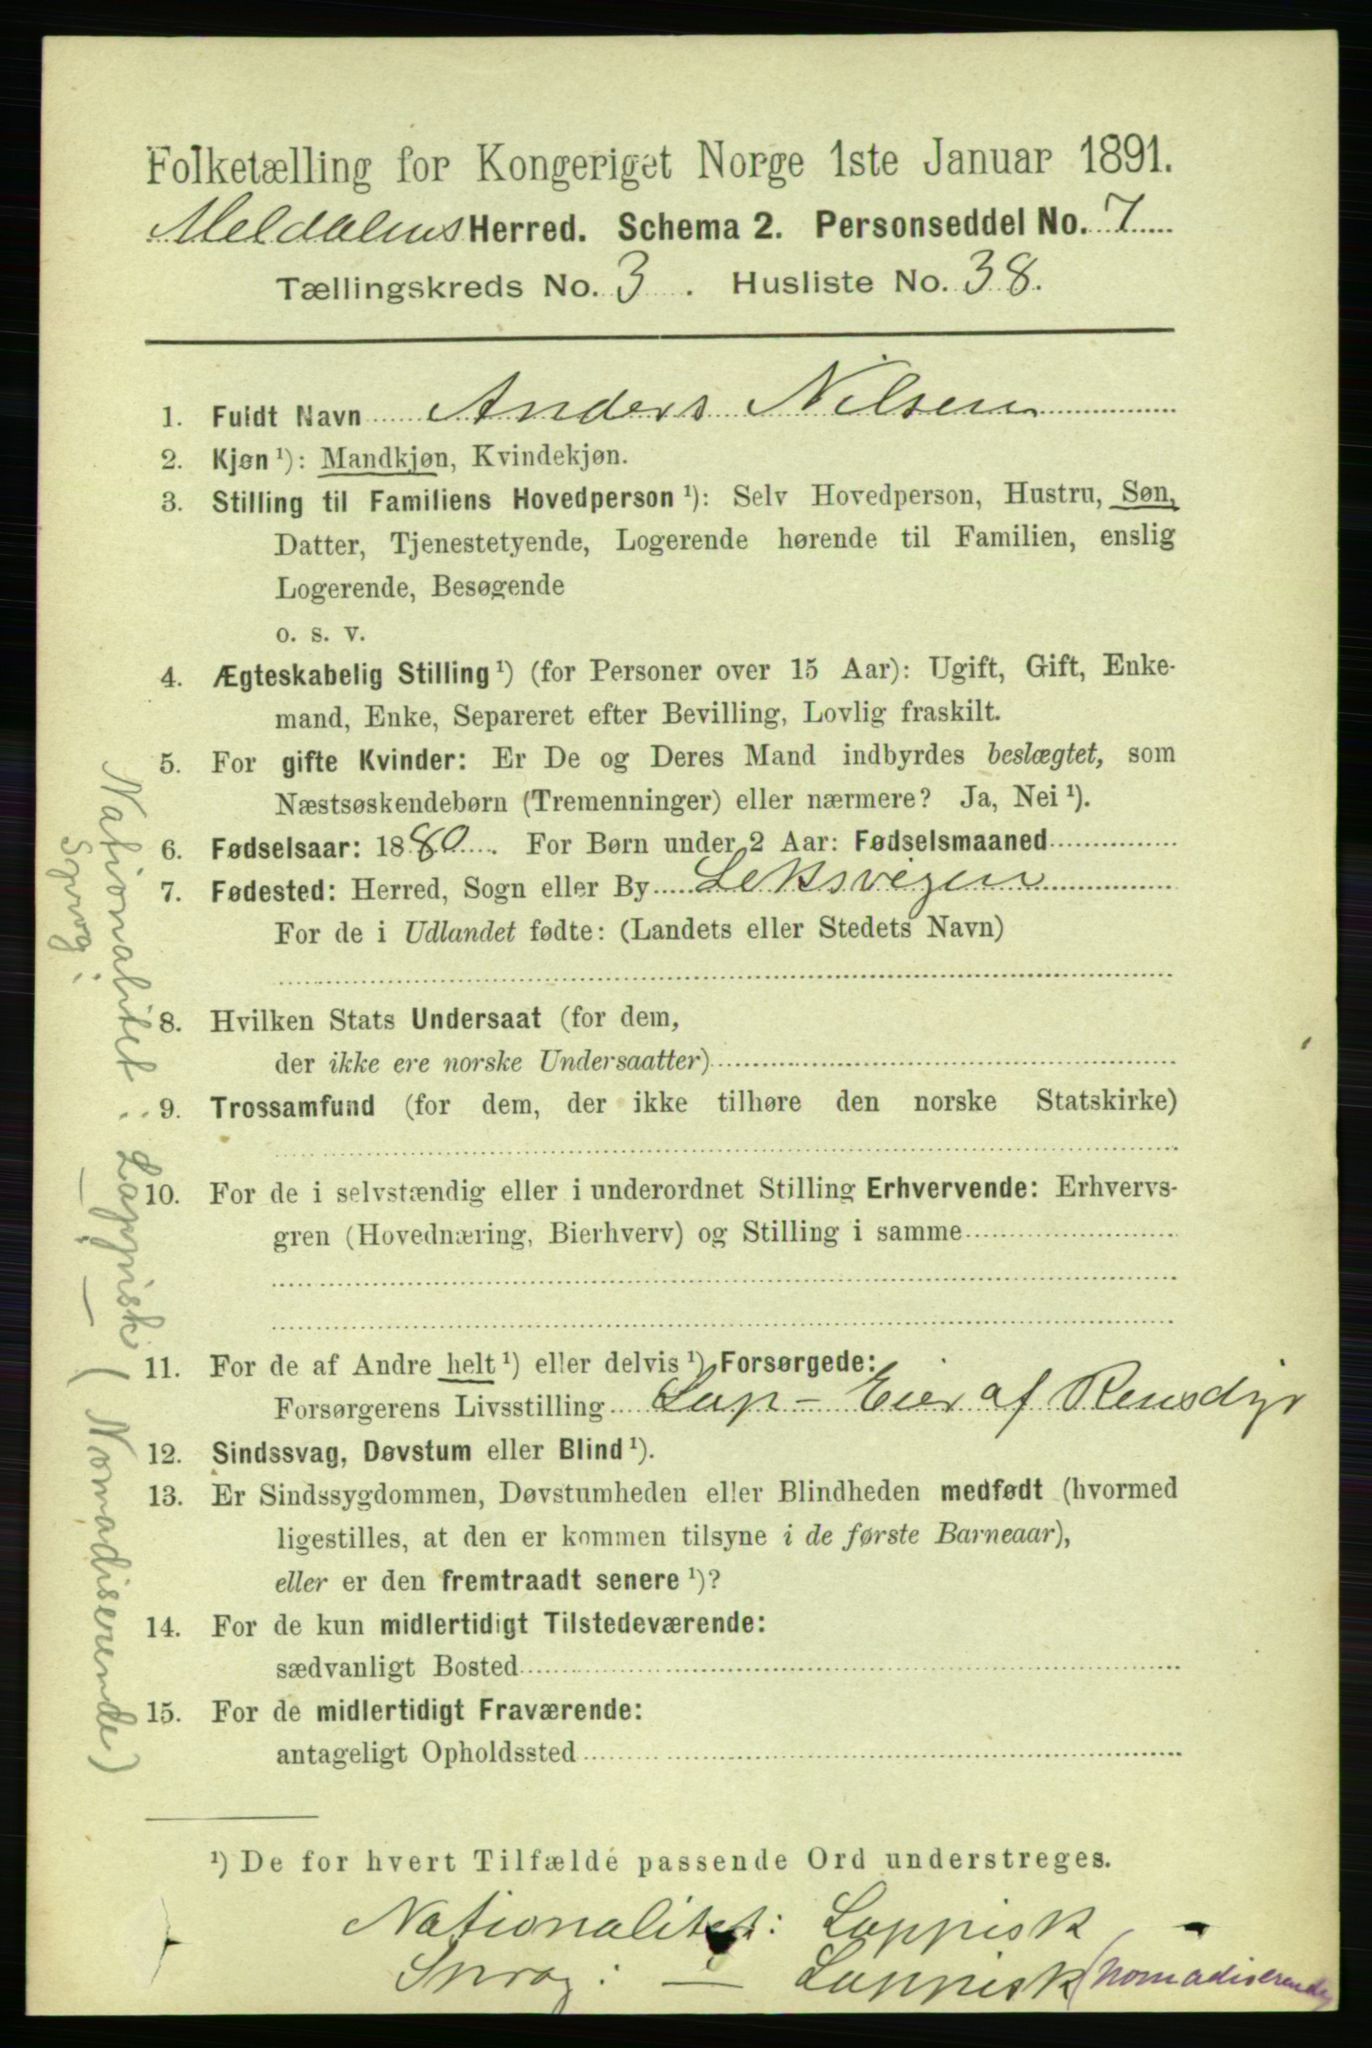 Folketælling for Kongeriget Norge 1ste Januar 1891.
Meldalens Herred. Schema 2. Personseddel No. 7
Tællingskreds No. 3. Husliste No. 38.
1. Fuldt Navn Anders Nilsen
2. Kjøn ¹): Mandkjøn, Kvindekjøn.
3. Stilling til Familiens Hovedperson ¹): Selv Hovedperson, Hustru, Søn,
Datter, Tjenestetyende, Logerende hørende til Familien, enslig
Logerende, Besøgende
o. s. v.
4. Ægteskabelig Stilling ¹) (for Personer over 15 Aar): Ugift, Gift, Enke-
mand, Enke, Separeret efter Bevilling, Lovlig fraskilt.
5. For gifte Kvinder: Er De og Deres Mand indbyrdes beslægtet, som
Næstsøskendebørn (Tremenninger) eller nærmere? Ja, Nei ¹).
6. Fødselsaar: 1880. For Børn under 2 Aar: Fødselsmaaned
7. Fødested: Herred, Sogn eller By Leksvigen
For de i Udlandet fødte: (Landets eller Stedets Navn)
8. Hvilken Stats Undersaat (for dem,
der ikke ere norske Undersaatter)
9. Trossamfund (for dem, der ikke tilhøre den norske Statskirke)
10. For de i selvstændig eller i underordnet Stilling Erhvervende: Erhvervs-
gren (Hovednæring, Bierhverv) og Stilling i samme
11. For de af Andre helt ¹) eller delvis ¹) Forsørgede:
Forsørgerens Livsstilling Lap - Eier af Rensdyr
12. Sindssvag, Døvstum eller Blind ¹).
13. Er Sindssygdommen, Døvstumheden eller Blindheden medfødt (hvormed
ligestilles, at den er kommen tilsyne i de første Barneaar),
eller er den fremtraadt senere ¹)?
14. For de kun midlertidigt Tilstedeværende:
sædvanligt Bosted
15. For de midlertidigt Fraværende:
antageligt Opholdssted
¹) De for hvert Tilfælde passende Ord understreges.
Nationalitet: Lappisk -
Sprog: — Lappisk (nomadiserende
Nationalitet: Lappisk (Nomadiserende)
Sprog: — " —